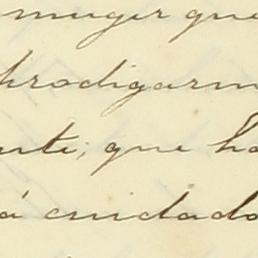 muger que
prodigarm
nte, que ha
á cuidado